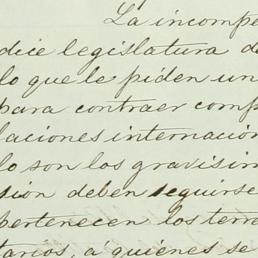 La incompe
dice legislatura d
lo que le piden un
para contraer comp
laciones internación
lo son los gravisim
sión deben seguirse
pertenecen los terr
tarios, á quienes se